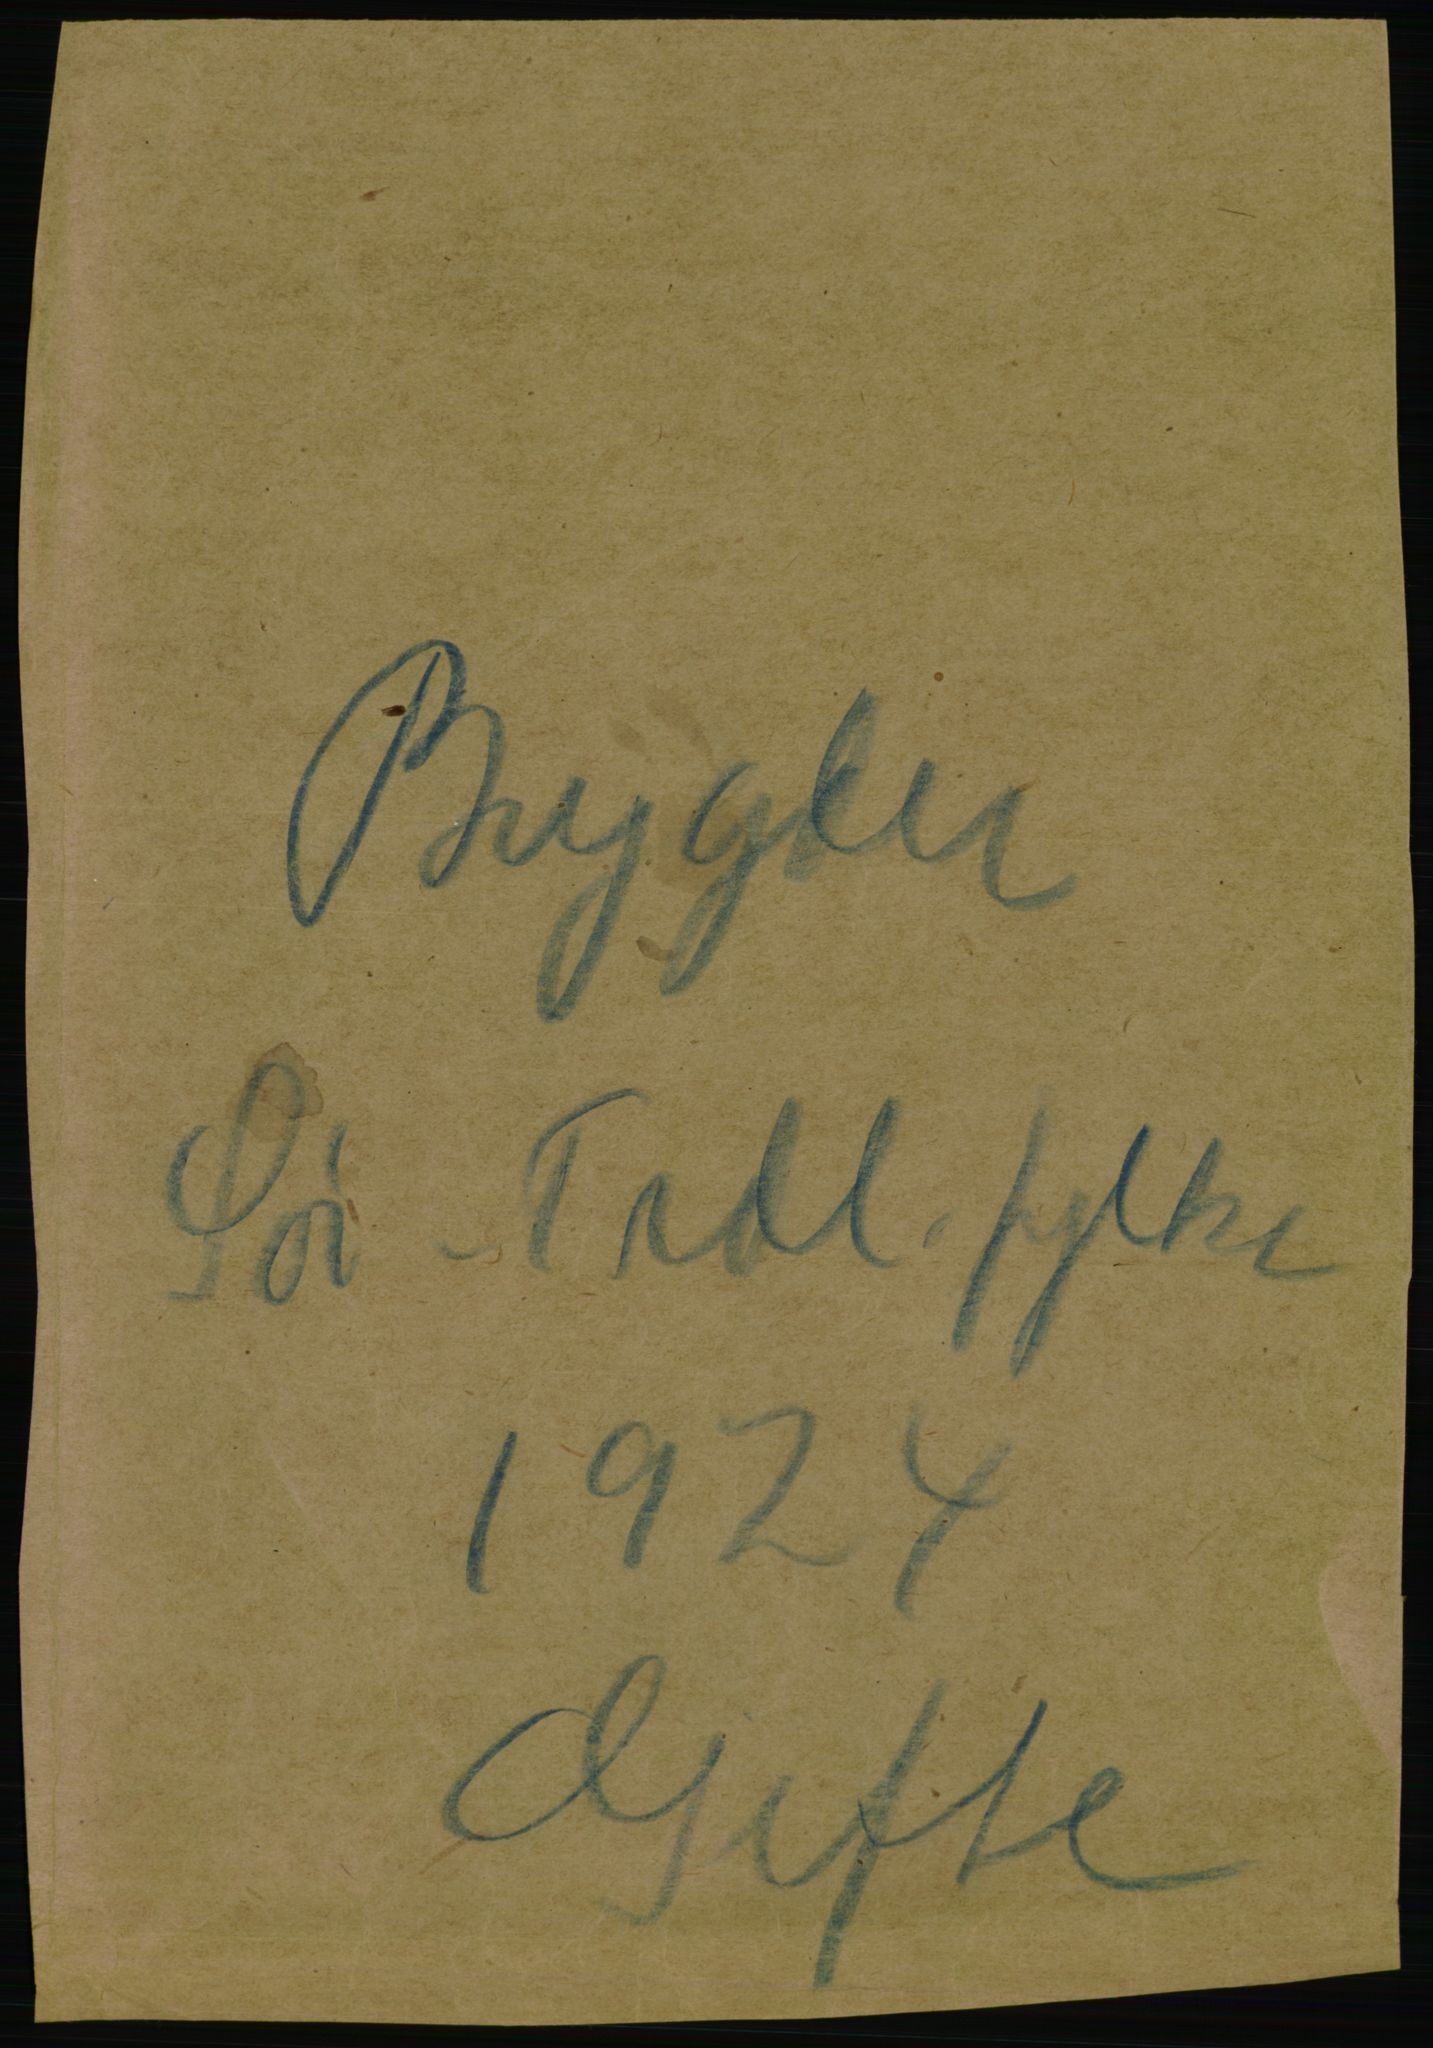 Bygder
Sör - Trdl. fylke
1924
Gifte